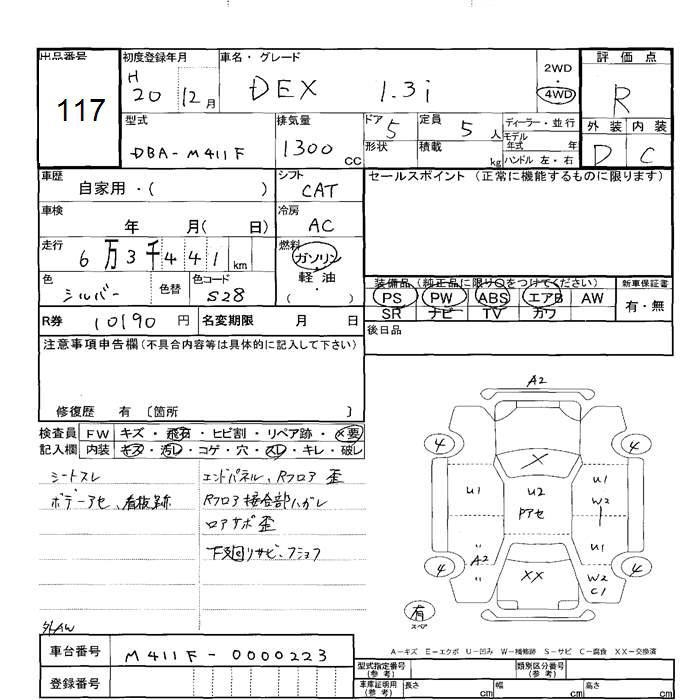 出品番号
117
初度登録年月
H 20 12月
車名・グレード
DEX 1.3i
2WD
4WD
評価点
R
外装 内装
D C
型式
DBA-M411F
排気量
1300 CC
ドア 5
形状
定員 5 人
積載 kg
ディーラー・並行
モデル年式 年
ハンドル 左・右
車歴
自家用・( )
シフト
CAT
セールスポイント (正常に機能するものに限ります)
車検
年 月( 日)
冷房
AC
走行
6万3千441 km
燃料
ガソリン
・
軽油
( )
色
シルバー
色替
色コード
S28
装備品 (純正品に限り○をつけてください)
PS PW ABS エアB AW
SR ナビ TV カワ
新車保証書
有・無
R券 10190 円 名変期限 月 日
後日品
注意事項申告欄(不具合内容等は具体的に記入して下さい)
修復歴 有 〔箇所 〕
検査員 FW キズ・飛石・ヒビ割・リペア跡・×要
記入欄 内装 キズ・汚レ・コゲ・穴・スレ・キレ・破レ
シートスレ
ボデーアセ、看板跡
エンドパネル、Rフロア 歪
Rフロア接合部ハガレ
ロアサポ歪
下廻りサビ、フショク
A2
4 4
X
U1 U2 U1
W2
ドアセ
A2 U1
4 4
XX W2
C1
有
スペア
外AW
A-キズ E-エクボ U-凹み W-補修跡 S-サビ C-腐食 XX-交換済
車台番号 M411F-0000223
登録番号
型式指定番号(参考)
類別区分番号(参考)
車庫証明用(参考) 長さ cm 幅 cm 高さ cm